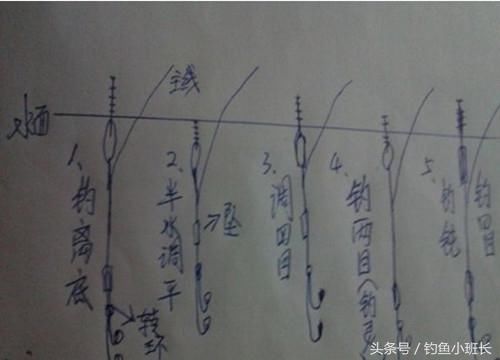 主线
水面
1、钓离底
2、半水调平
坠
3、调四目
4、钓两目(钓灵
5、钓钝
钓四目
转环
头条号／钓鱼小班长